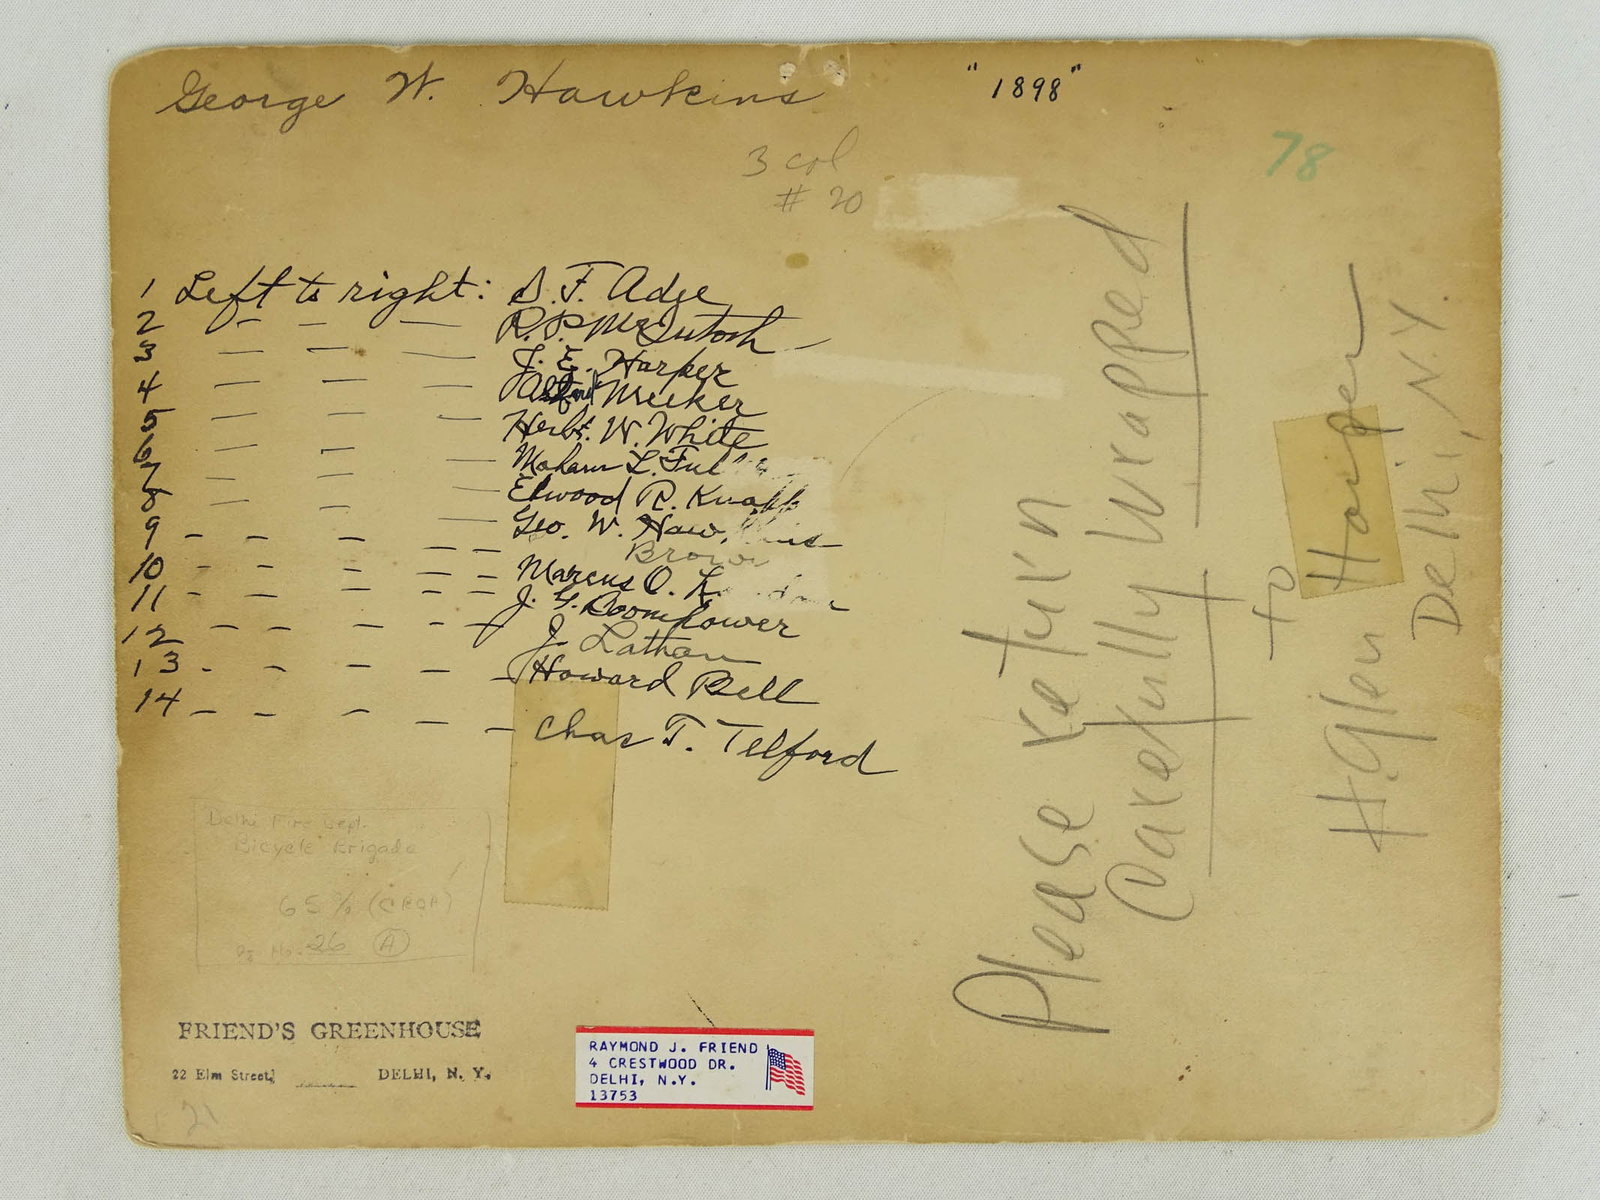 George W. Hawkins
"1898"
3 col
# 20
78
1 Left to right: S. F. Adee
2 — — — R. P. McIntosh —
3 — — — J. E. Harper
4 — — — Meeker
5 — — — Herbt. W. White
6 — — — L.
7 — — — Elwood R. Knapp
8 — — — Geo. W. Hawkins
9 - - - - - Brown
10 - - - - - Marcus O.
11 - - - - - J. G. Boomhower
12 - - - - - J. Latham
13 - - - - - Howard Bell
14 - - - - - Chas T. Telford
Delhi Fire Dept.
Bicycle Brigade
65%
Pg. No. 26 A
FRIEND'S GREENHOUSE
22 Elm Street, DELHI, N. Y.
21
RAYMOND J. FRIEND
4 CRESTWOOD DR.
DELHI, N.Y.
13753
Please return
Carefully Wrapped
to
H. Glen Hooper
Delhi, N.Y.